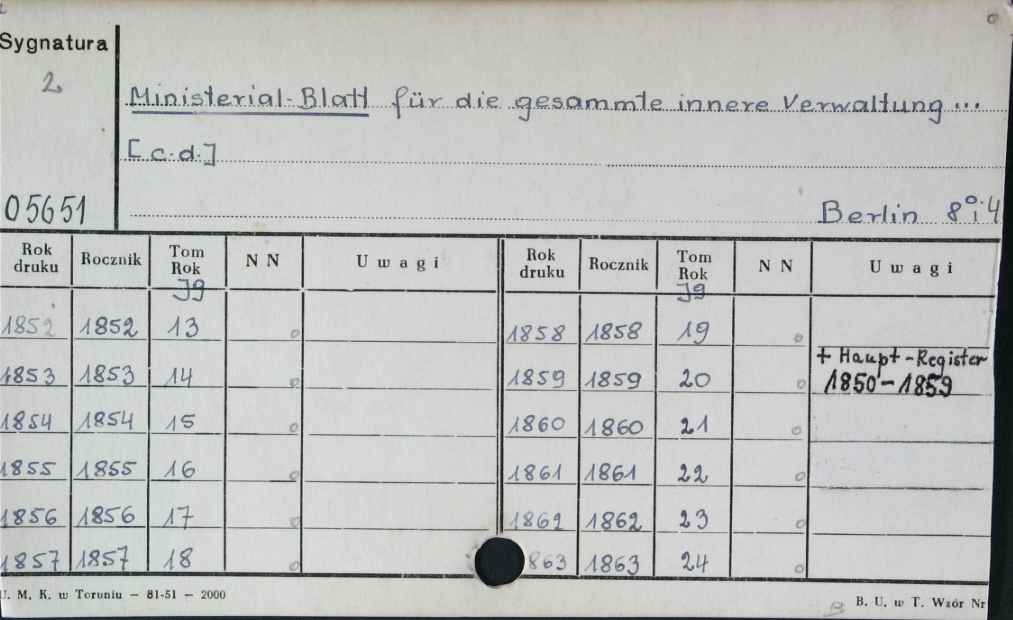 Sygnatura
2
Ministerial-Blatt für die gesammte innere Verwaltung...
[c.d.]
05651
Berlin 8° i 4
Rok druku Rocznik Tom Rok NN Uwagi Rok druku Rocznik Tom Rok NN Uwagi
Jg Jg
1852 1852 13 o 1858 1858 19 o
+ Haupt-Register
1853 1853 14 o 1859 1859 20 o 1850-1859
1854 1854 15 o 1860 1860 21 o
1855 1855 16 o 1861 1861 22 o
1856 1856 17 o 1862 1862 23 o
1857 1857 18 o 1863 1863 24 o
U. M. K. w Toruniu — 81-51 — 2000
B. U. w T. Wzór Nr